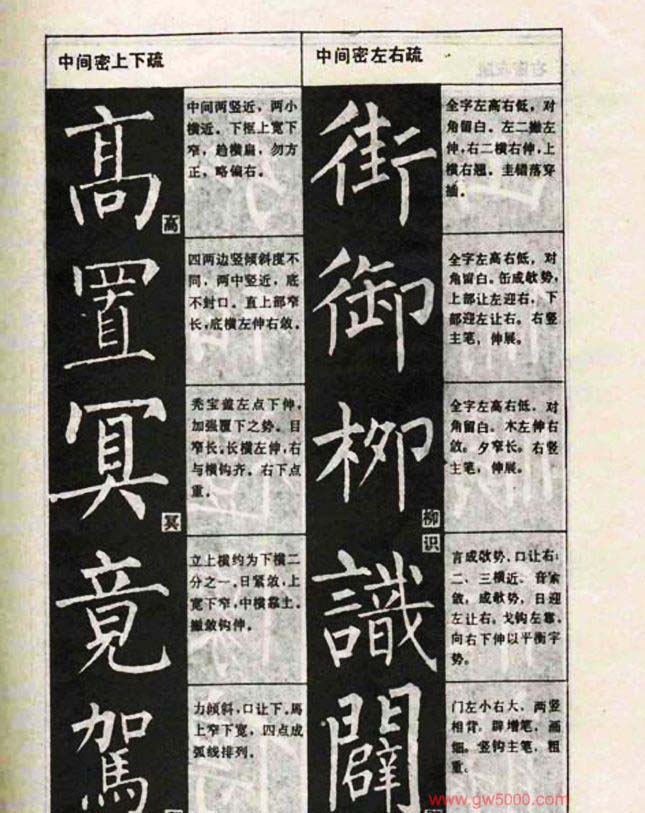 中间密上下疏
高
高
中间两竖近，两小
横近。下框上宽下
窄，趋横扁，勿方
正，略偏右。
置
四两边竖倾斜度不
同，两中竖近，底
不封口。直上部窄
长，底横左伸右敛。
冥
冥
秃宝盖左点下伸，
加强覆下之势。目
窄长。长横左伸，右
与横钩齐。右下点
重。
竟
立上横约为下横二
分之一。日紧敛，上
宽下窄，中横靠上。
撇敛钩伸。
駕
力倾斜，口让下。馬
上窄下宽，四点成
弧线排列。
中间密左右疏
街
全字左高右低，对
角留白。左二撇左
伸，右二横右伸，上
横右翘。圭错落穿
插。
御
全字左高右低，对
角留白。缶成敧势，
上部让左迎右，下
部迎左让右。右竖
主笔，伸展。
柳
柳
全字左高右低，对
角留白。木左伸右
敛。夕窄长。右竖
主笔，伸展。
識
识
言成敧势，口让右；
二、三横近。音紧
敛，成敧势，日迎
左让右。戈钩左靠，
向右下伸以平衡字
势。
闢
门左小右大，两竖
相背。辟增笔，画
细。竖钩主笔，粗
重。
www.gw5000.com